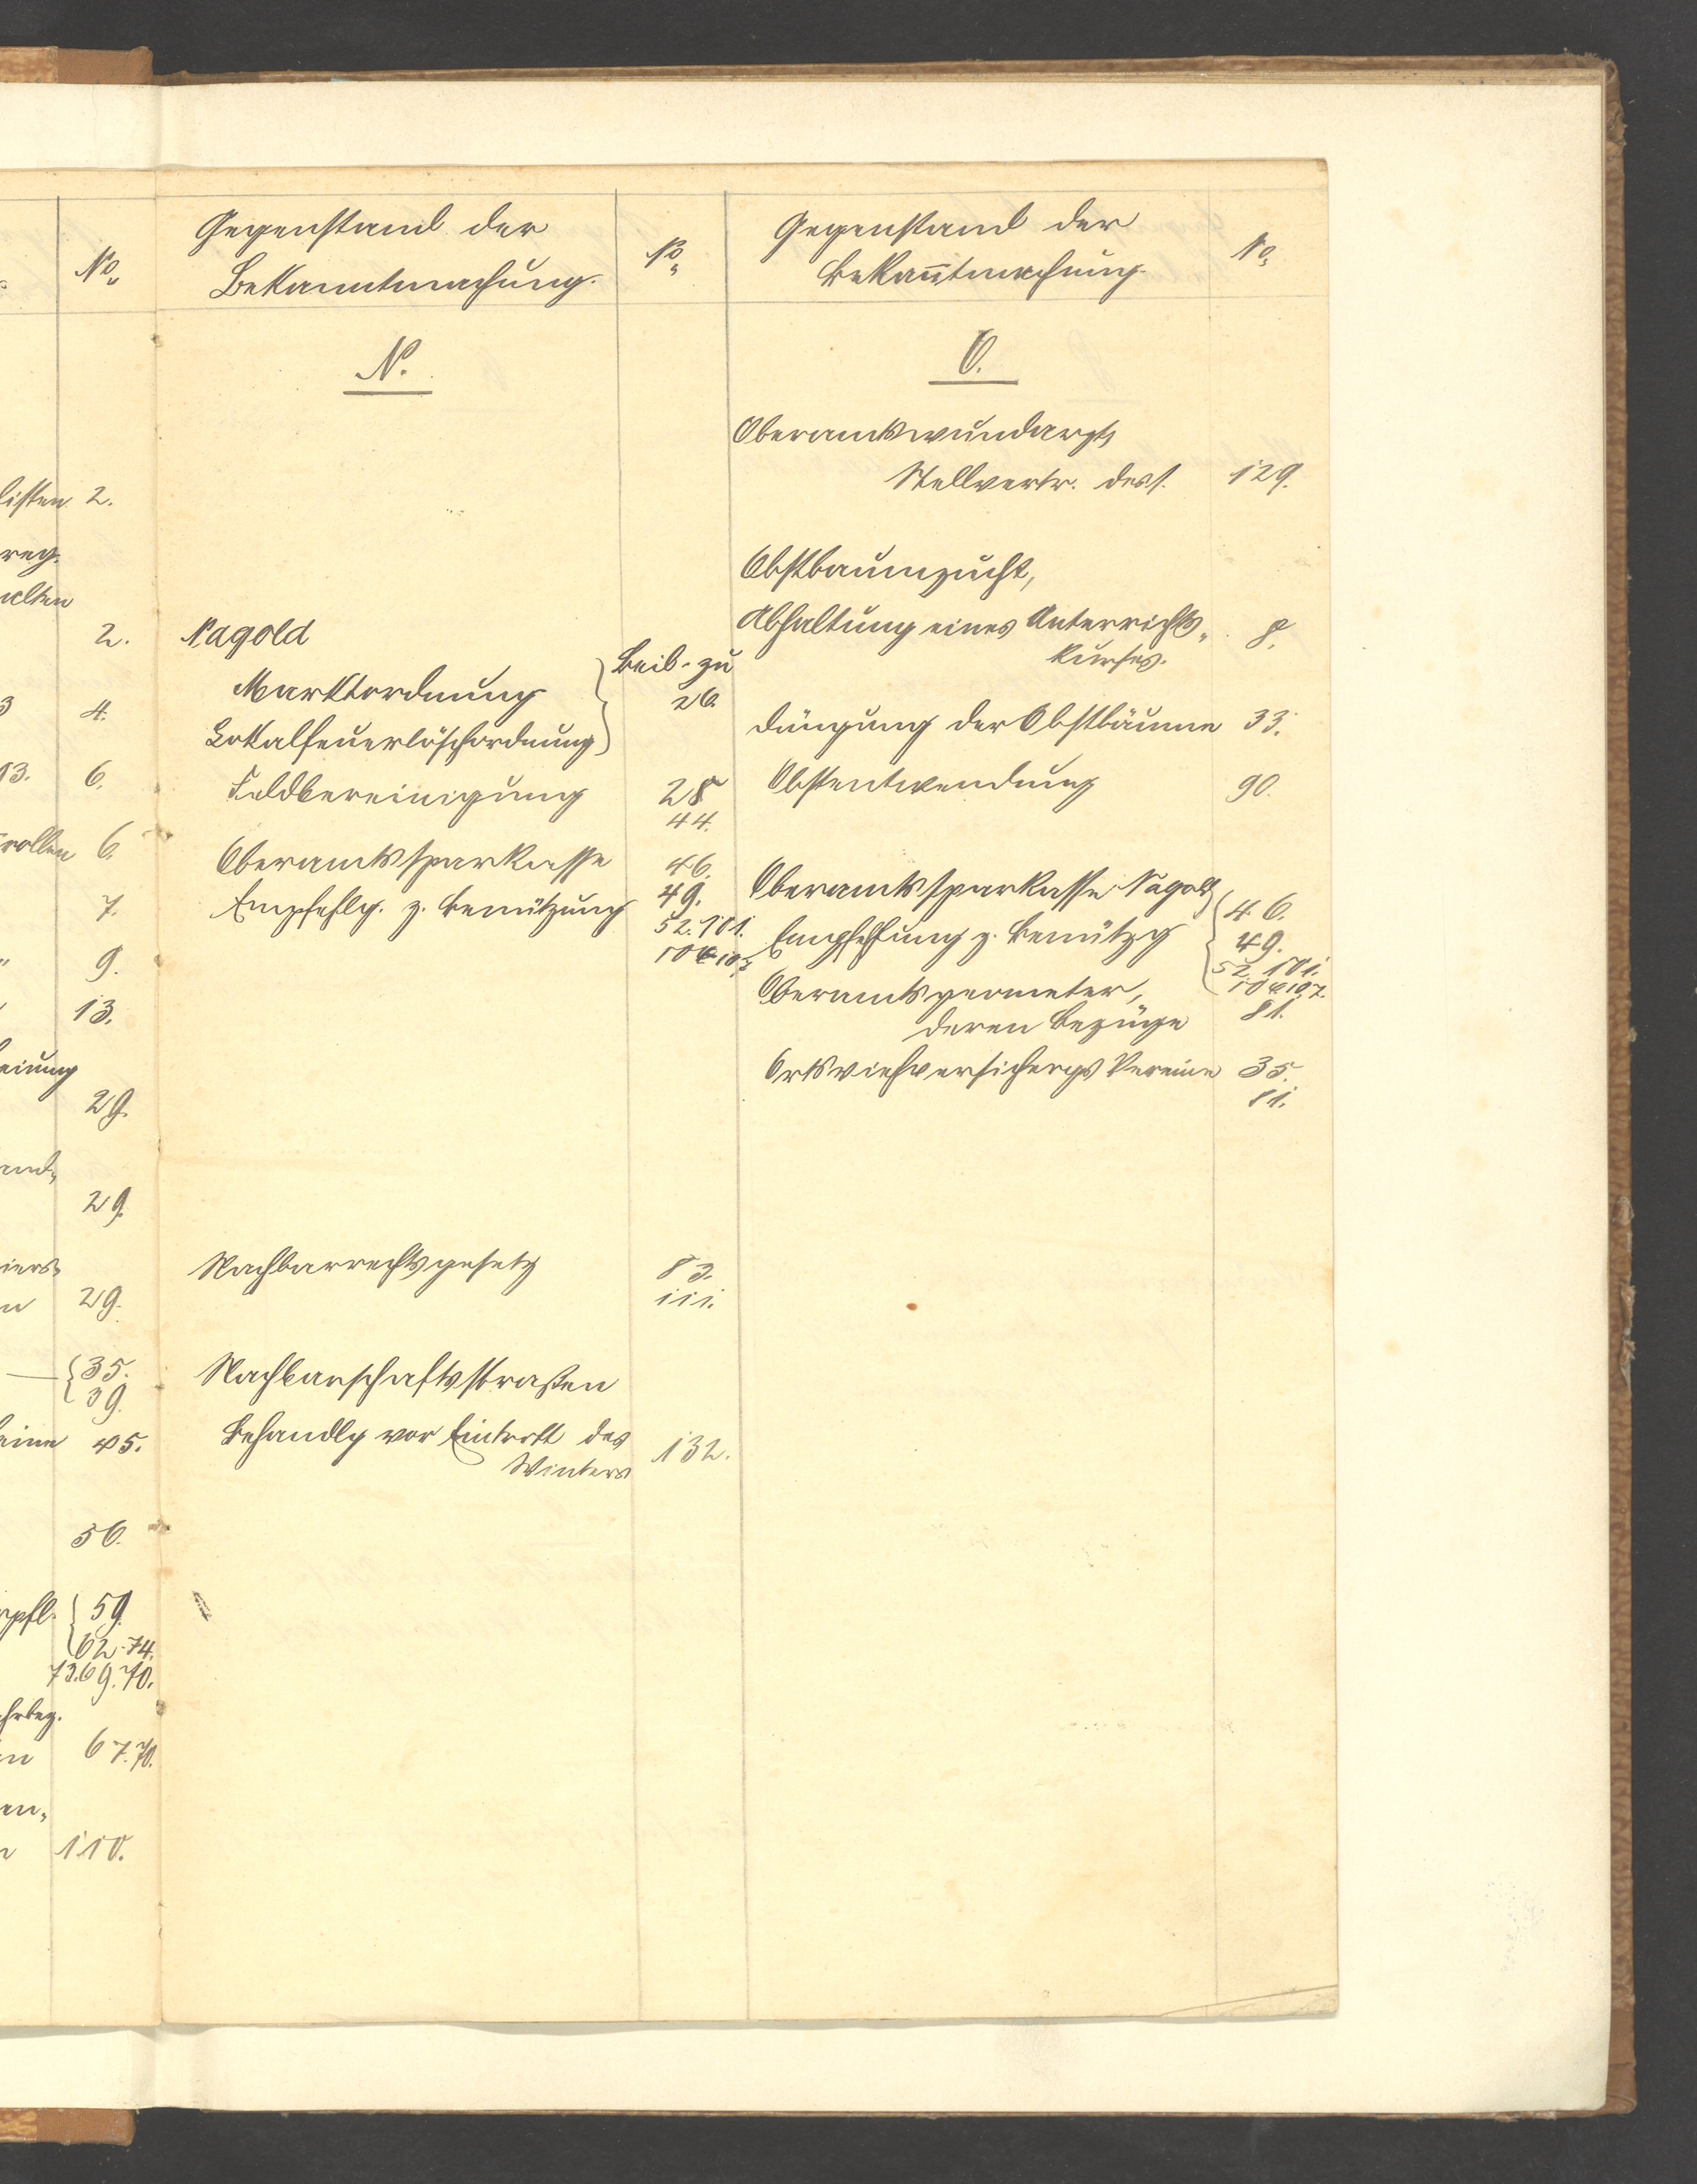 No.
listen 2.
reg.
alten
2.
3 4.
13. 6.
rollen 6.
7.
" 9.
13.
29.
29.
29.
35.
39.
eine 45.
56.
rpfl. 59.
62-74.
73.69.70.
67.70.
en,
110.
Gegenstand der
Bekanntmachung.
No.
N.
Nagold
Marktordnung
Lokalfeuerlöschordnung
Beil. zu
26.
Feldbereinigung 28
44.
Oberamtssparkasse 46.
Empfehlg. z. Benützung 49.
52. 101.
106 107
Nachbarrechtsgesetz 83.
111.
Nachbarschaftsstraßen
Behandlg vor Eintritt des
Winters 132.
Gegenstand der
Bekan̄tmachung.
No.
O.
Oberamtswundarzt,
Stellvertr. dess. 129.
Obstbaumzucht,
Abhaltung eines Unterrichts- 8.
kurses.
Düngung der Obstbäume 33.
Obstentwendung 90.
Oberamtssparkasse Nagold 46.
Empfehlung z. Benützg 49.
52. 101.
106 107.
Oberamtsgeometer,
deren Bezüge 81.
Ortsviehversichergs Vereine 35.
81.